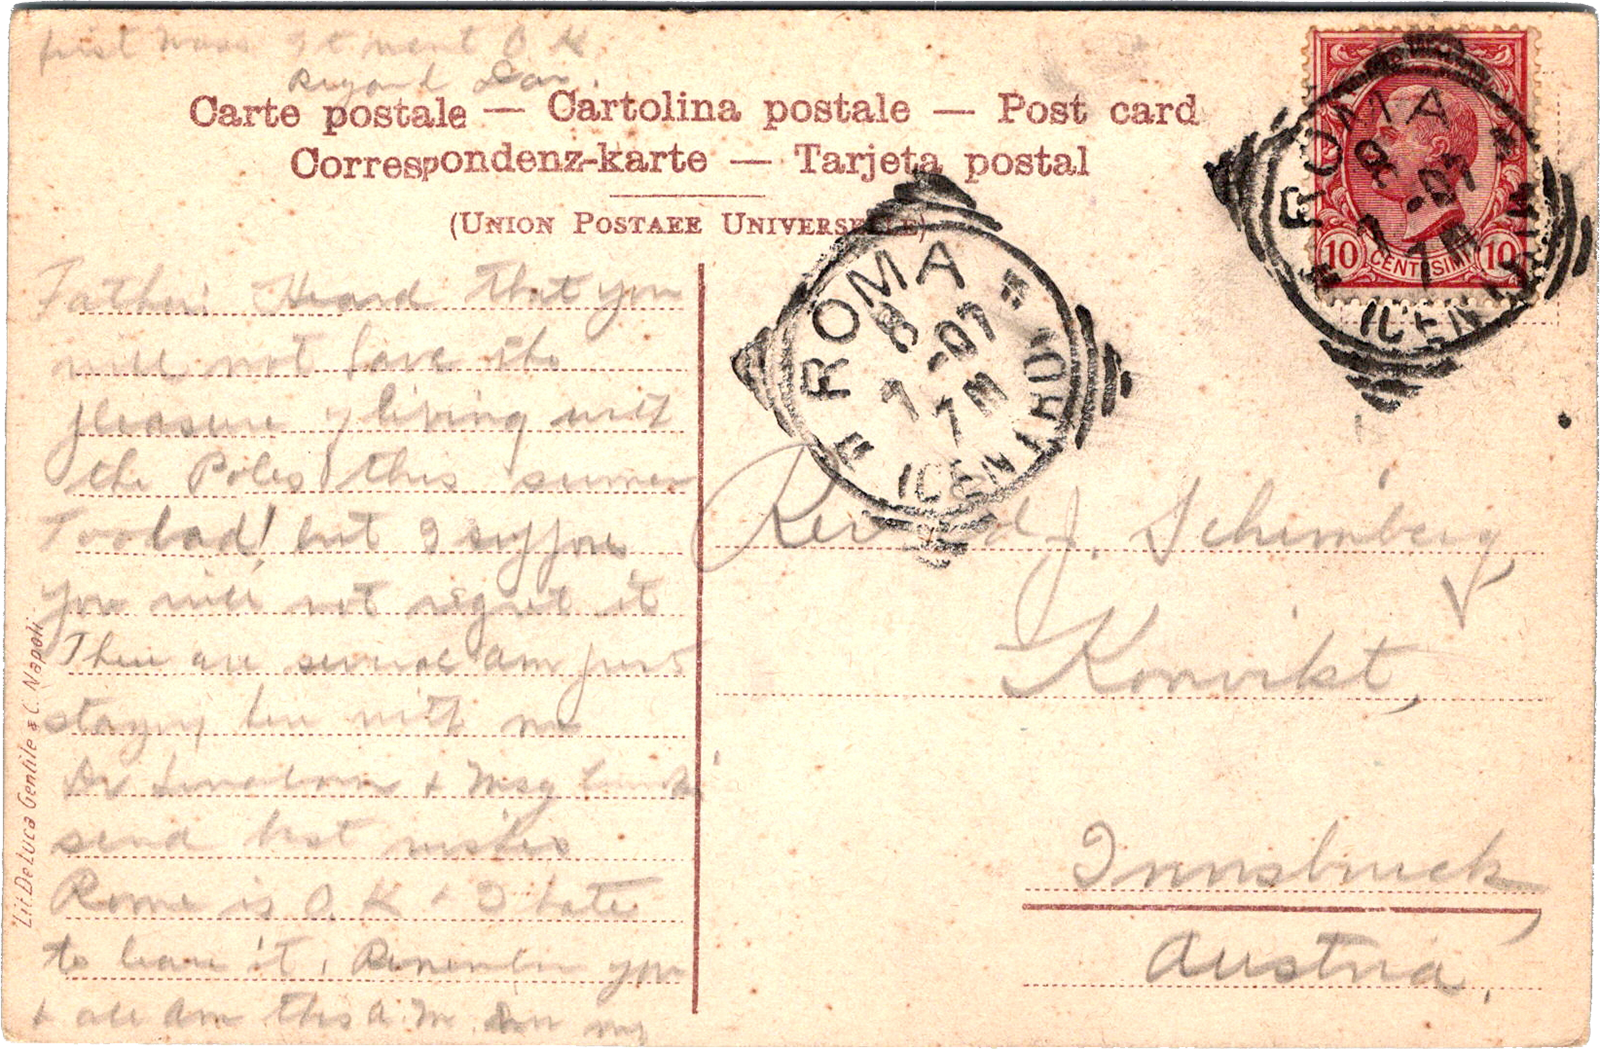 first mass. It went O.K.
Carte postale — Cartolina postale — Post card
Correspondenz-karte — Tarjeta postal
(UNION POSTAEE UNIVERSELLE)
Father: Heard that you
will not have the
pleasure of living with
the Poles this summer
Too bad! but I suppose
you will not regret it
There are several am
staying here with me
Dr & Msg
send best wishes
Rome is O.K & I hate
to leave it. Remember you
& all Am this A.M. in my
Rev J. Schimberg,
Konvikt,
Innsbruck,
Austria.
ROMA
8
7 -07
7M
ROMA
8
7 -07
7M
10 CENTESIMI 10
Lit. De Luca Gentile & C. Napoli